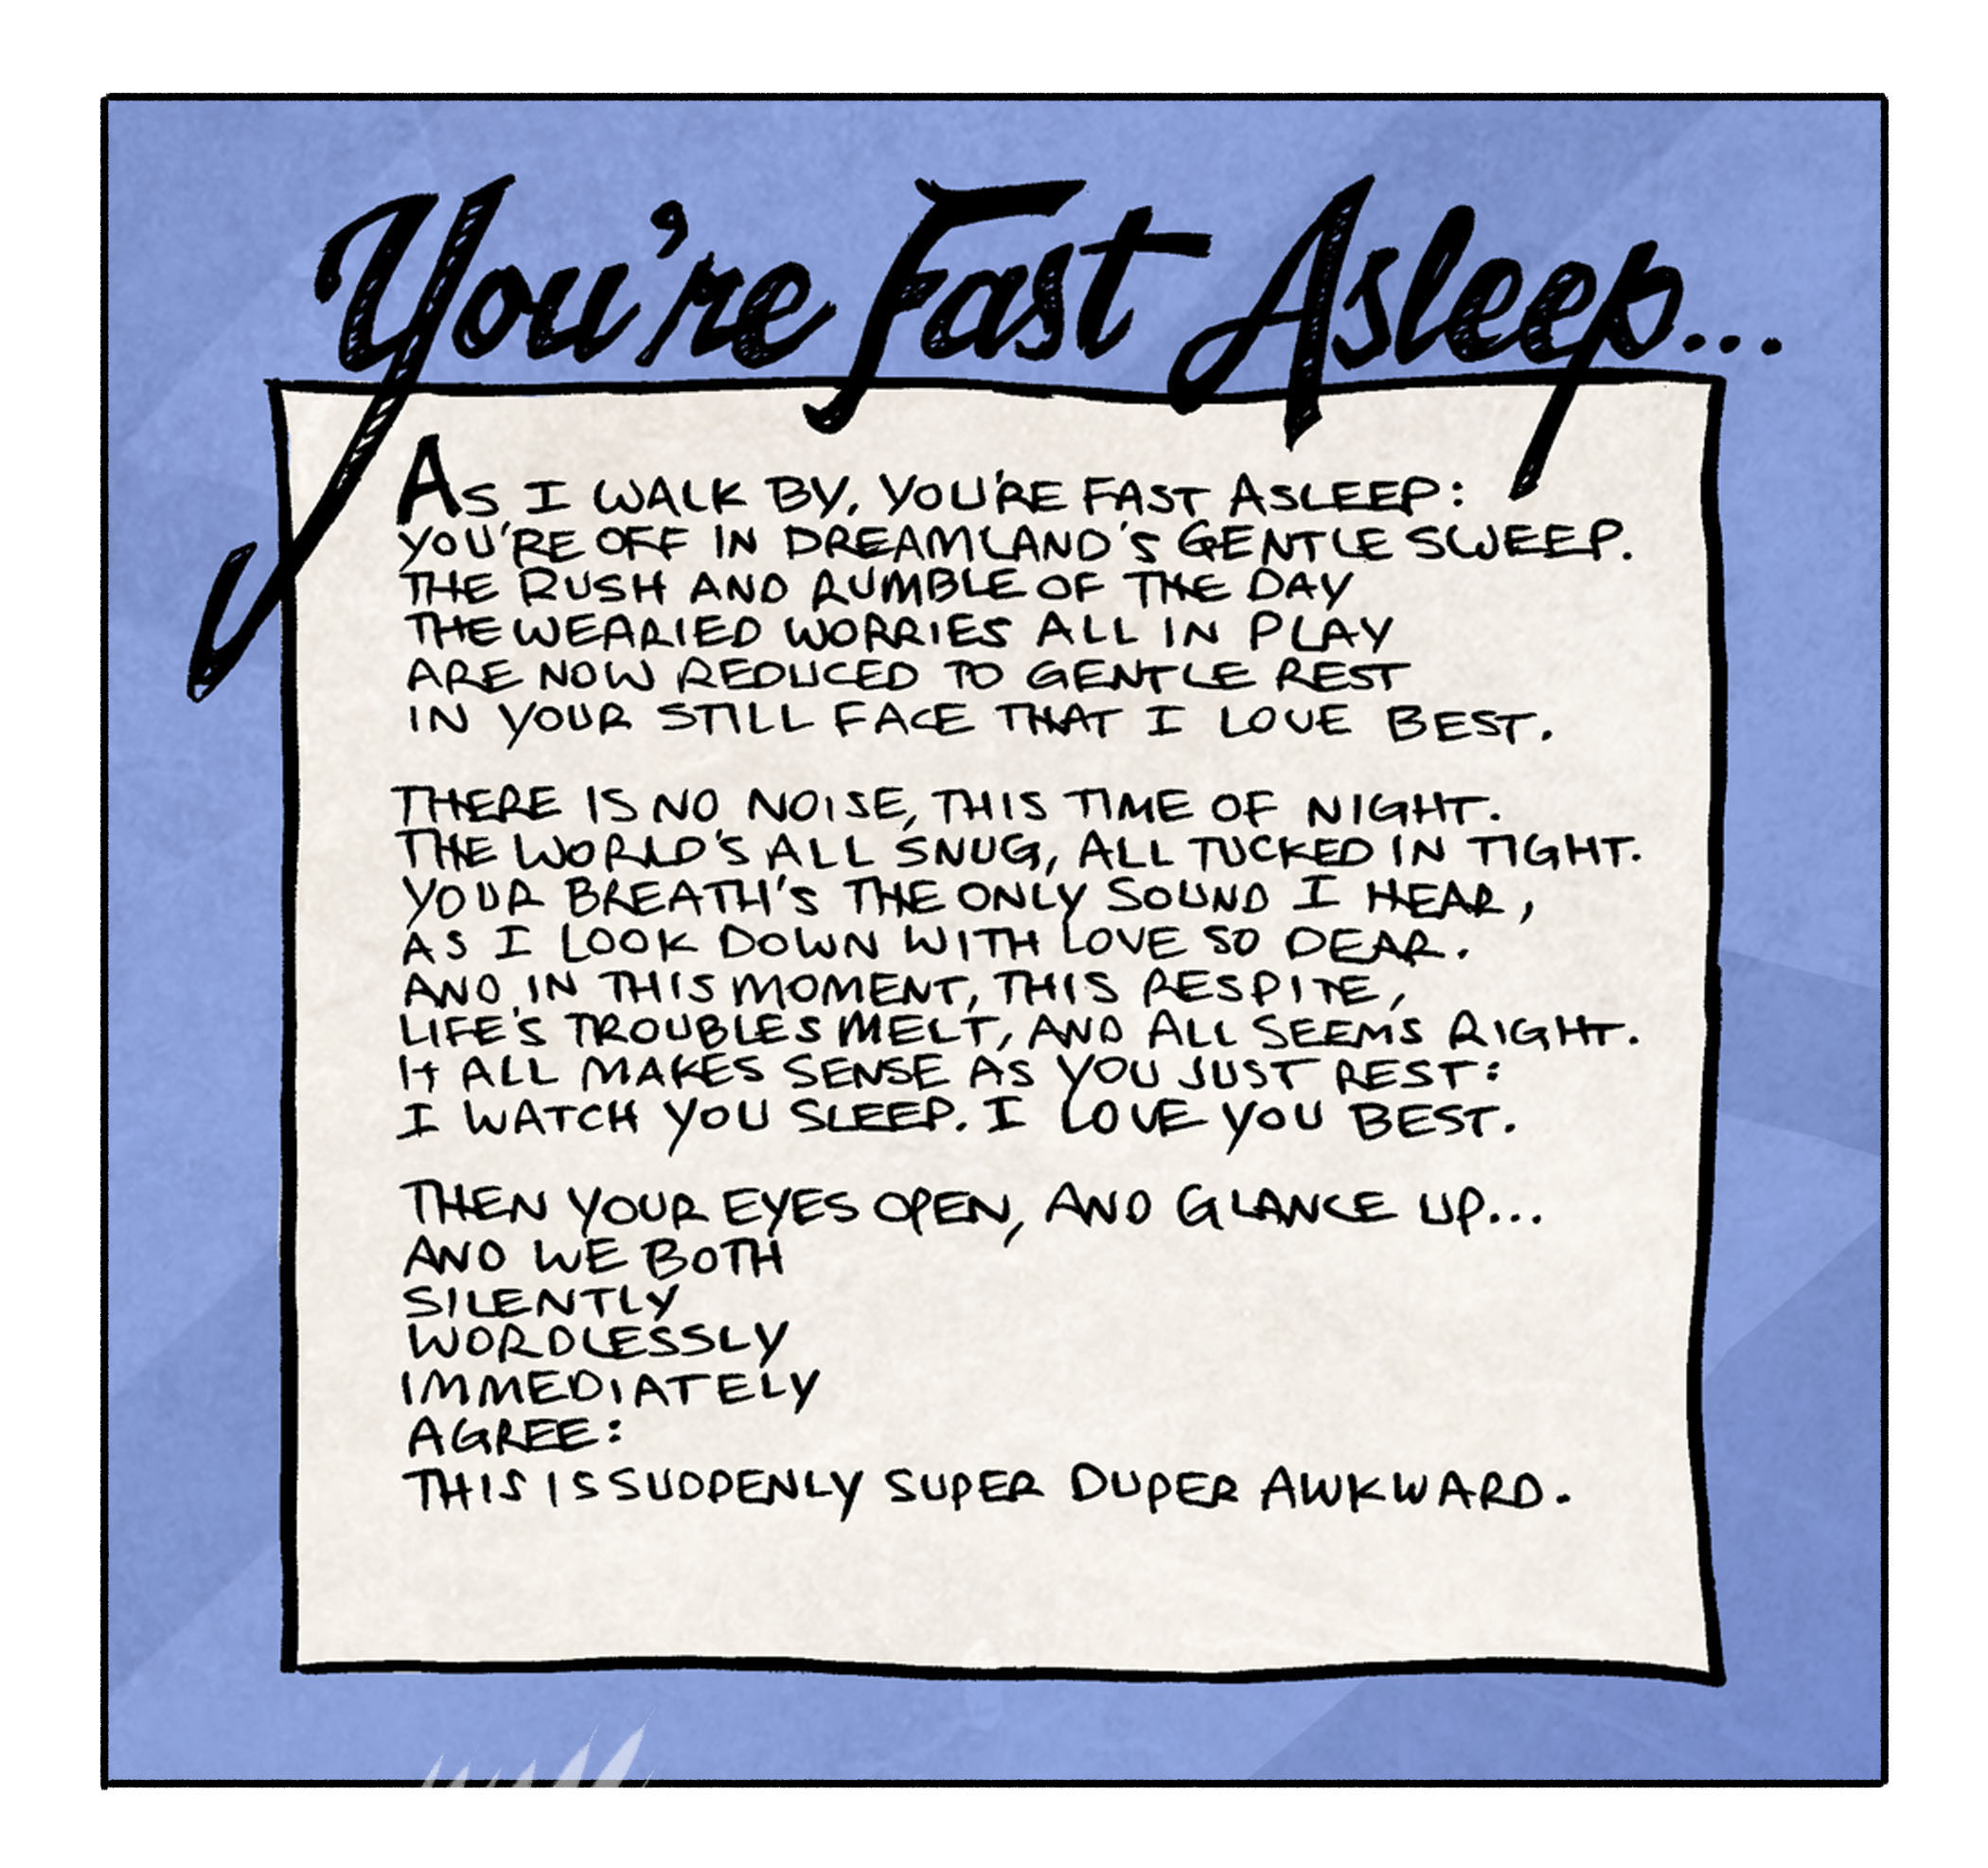 You're Fast Asleep...
AS I WALK BY, YOU'RE FAST ASLEEP:
YOU'RE OFF IN DREAMLAND'S GENTLE SWEEP.
THE RUSH AND RUMBLE OF THE DAY
THE WEARIED WORRIES ALL IN PLAY
ARE NOW REDUCED TO GENTLE REST
IN YOUR STILL FACE THAT I LOVE BEST.
THERE IS NO NOISE, THIS TIME OF NIGHT.
THE WORLD'S ALL SNUG, ALL TUCKED IN TIGHT.
YOUR BREATH'S THE ONLY SOUND I HEAR,
AS I LOOK DOWN WITH LOVE SO DEAR.
AND IN THIS MOMENT, THIS RESPITE,
LIFE'S TROUBLES MELT, AND ALL SEEMS RIGHT.
It ALL MAKES SENSE AS YOU JUST REST:
I WATCH YOU SLEEP. I LOVE YOU BEST.
THEN YOUR EYES OPEN, AND GLANCE UP...
AND WE BOTH
SILENTLY
WORDLESSLY
IMMEDIATELY
AGREE:
THIS IS SUDDENLY SUPER DUPER AWKWARD.